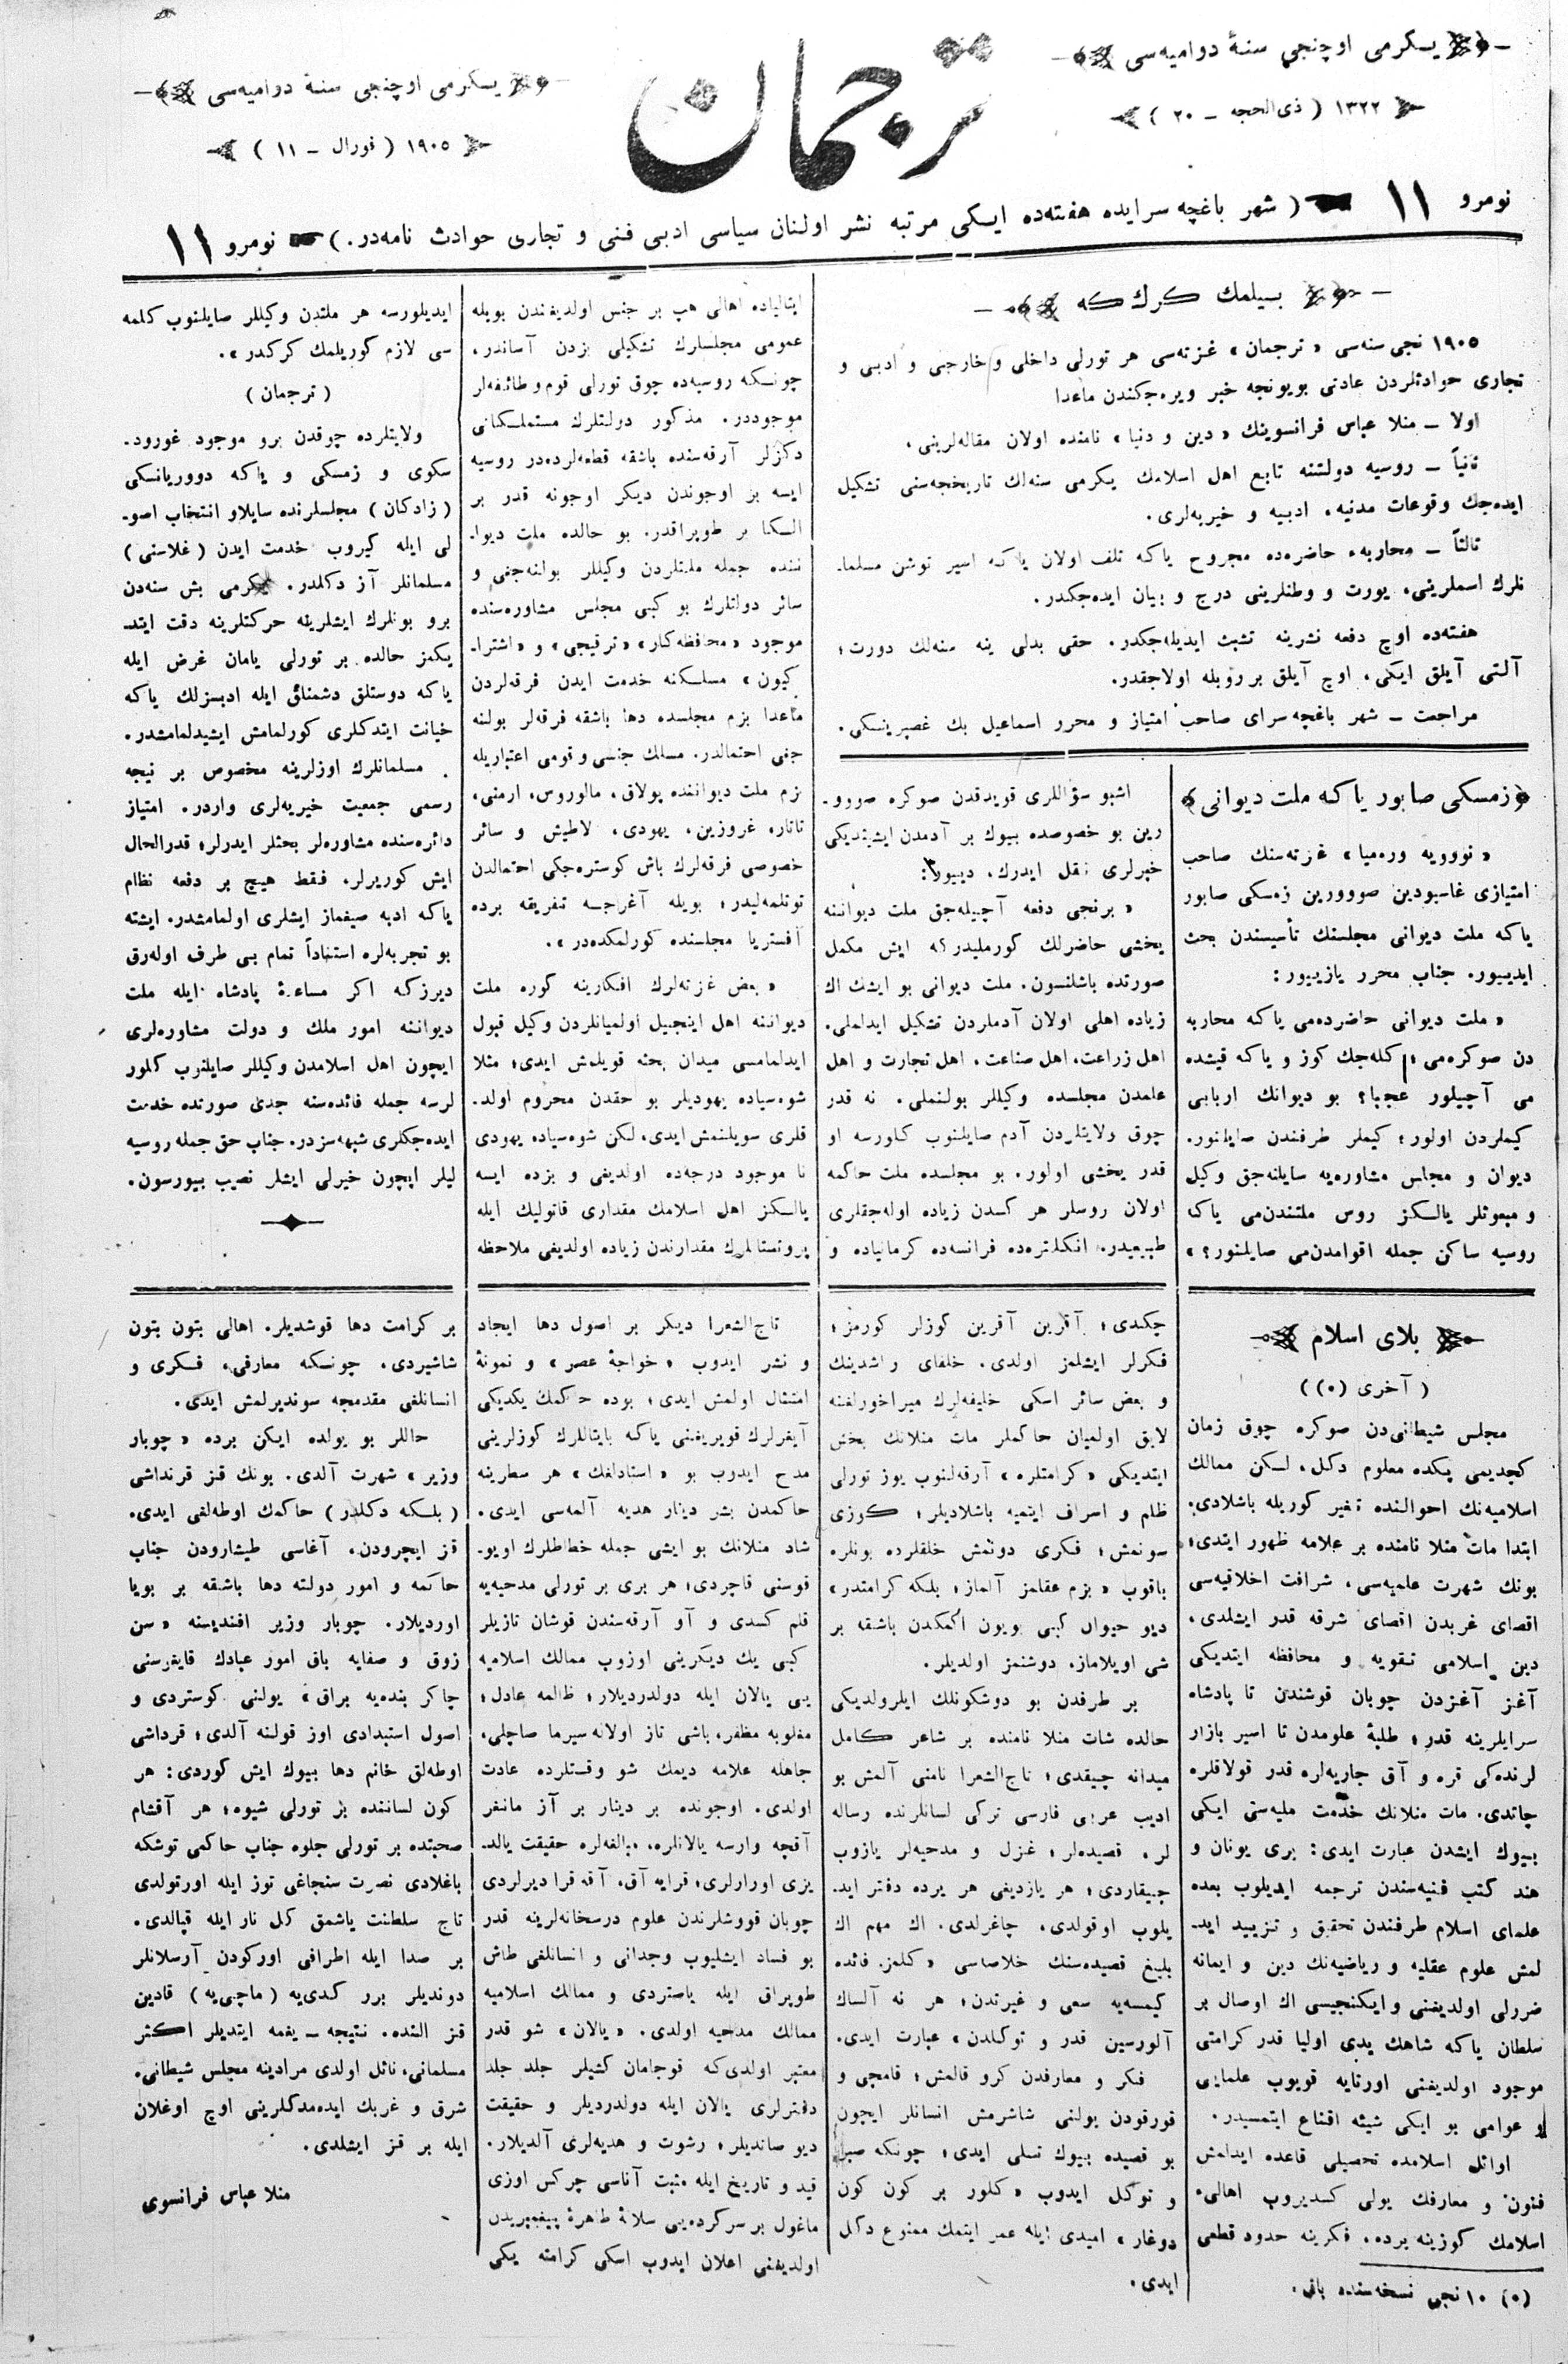 يكرمی اوچنجی سنۀ دواميه‌سی
١٣٢٢ ( ذی‌الحجه ـ ٢٠ )
ترجمان
يكرمی اوچنجی سنۀ دواميه‌سی
١٩٠٥ ( فورال ـ ١١ )
نومرو ١١ ( شهر باغچه سرايده هفته‌ده ايكی مرتبه نشر اولنان سياسی ادبی فنی و تجاری حوادث نامه‌در. ) نومرو ١١
بيلمك كرك كه
١٩٠٥ نجی سنه‌سی « ترجمان » غزته‌سی هر تورلی داخلی و خارجی و ادبی و
تجاری حوادثلردن عادتی بويونجه خبر ويره‌جكندن ماعدا
اولا ـ منلا عباس فرانسوينك « دين و دنيا » نامنده اولان مقاله‌لرينی،
ثانياً ـ روسيه دولتنه تابع اهل اسلامك يكرمی سنه‌لك تاريخچه‌سنی تشكيل
ايده‌جك وقوعات مدنيه، ادبيه و خيريه‌لری.
ثالثاً ـ محاربهء حاضره‌ده مجروح ياكه تلف اولان ياكه اسير توشن مسلما-
نلرك اسملرينی، يورت و وطنلرينی درج و بيان ايده‌جكدر.
هفته‌ده اوچ دفعه نشرينه تشبث ايديله‌جكدر. حقی بدلی ينه سنه‌لك دورت؛
آلتی آيلق ايكی، اوچ آيلق بر روبله اولاجقدر.
مراجعت ـ شهر باغچه سرای صاحب امتياز و محرر اسماعيل بك غصپرينسكی.
﴿ زمسكی صابور ياكه ملت ديوانی ﴾
« نوويه وره‌ميا » غزته‌سنك صاحب
امتيازی غاسبودين صووورين زمسكی صابور
ياكه ملت ديوانی مجلسنك تأسيسندن بحث
ايدييور. جناب محرر يازييور:
« ملت ديوانی حاضرده‌می ياكه محاربه
دن صوكره‌می؛ كله‌جك كوز و ياكه قيشده
می آچيلور عجبا؟ بو ديوانك اربابی
كيملردن اولور؛ كيملر طرفندن صايلنور.
ديوان و مجلس مشاوره‌يه سايلنه‌جق وكيل
و مبعوثلر يالكز روس ملتندن‌می ياك
روسيه ساكن جمله اقوامدن‌می صايلنور؟ »
اشبو سؤاللری قويدقدن صوكره صووو-
رين بو خصوصده بيوك بر آدمدن ايشتديكی
خبرلری نقل ايدرك، دييور:
« برنجی دفعه آچيله‌جق ملت ديواننه
يخشی حاضرلك كورمليدر كه ايش مكمل
صورتده باشلنسون. ملت ديوانی بو ايشك اك
زياده اهلی اولان آدملردن تشكيل ايدلملی.
اهل زراعت، اهل صناعت، اهل تجارت و اهل
علمدن مجلسده وكيللر بولنملی. نه قدر
چوق ولايتلردن آدم صايلنوب كلورسه او
قدر يخشی اولور. بو مجلسده ملت حاكمه
اولان روسلر هر كسدن زياده اوله‌جقلری
طبيعيدر. انكلتره‌ده فرانسه‌ده كرمانياده و
ايتالياده اهالی هپ بر جنس اولديغندن بويله
عمومی مجلسلرك تشكيلی بزدن آساندر،
چونكه روسيه‌ده چوق تورلی قوم و طائفه‌لر
موجوددر. مذكور دولتلرك مستملكاتی
دكزلر آرقه‌سنده باشقه قطعه‌لرده‌در روسيه
ايسه بر اوجوندن ديكر اوجونه قدر بر
الكا بر طوپراقدر. بو حالده ملت ديوا-
ننده جمله ملتلردن وكيللر بولنه‌جغی و
سائر دولتلرك بو كبی مجلس مشاوره‌سنده
موجود « محافظه‌كار » « ترقيجی » و « اشترا-
كيون » مسلكنه خدمت ايدن فرقه‌لردن
ماعدا بزم مجلسده دها باشقه فرقه‌لر بولنه
جغی احتمالدر. مسلك جنسی و قومی اعتباريله
بزم ملت ديواننده پولاق، مالوروس، ارمنی،
تاتار، غروزين، يهودی، لاطيش و سائر
خصوصی فرقه‌لرك باش كوستره‌جكی احتمالدن
توتلمه‌ليدر؛ بويله آغراجه تفريقه برده
آفستريا مجلسنده كورلمكده‌در ».
« بعض غزته‌لرك افكارينه كوره ملت
ديواننه اهل اينجيل اولميانلردن وكيل قبول
ايدلمامسی ميدان بحثه قويلمش ايدی؛ مثلا
شوه‌سياده يهوديلر بو حقدن محروم اولد-
قلری سويلنمش ايدی، لكن شوه‌سياده يهودی
نا موجود درجه‌ده اولديغی و بزده ايسه
يالكز اهل اسلامك مقداری قاتوليك ايله
پروتستانلرك مقدارندن زياده اولديغی ملاحظه
ايديلورسه هر ملتدن وكيللر صايلنوب كلمه
سی لازم كوريلمك كركدر ».
( ترجمان )
ولايتلرده چوقدن برو موجود غورود-
سكوی و زمسكی و ياكه دووريانسكی
( زادكان ) مجلسلرنده سايلاو انتخاب اصو-
لی ايله كيروب خدمت ايدن ( غلاسنی )
مسلمانلر آز دكلدر. يكرمی بش سنه‌دن
برو بونلرك ايشلرينه حركتلرينه دقت ايتد-
يكمز حالده بر تورلی يامان غرض ايله
ياكه دوستلق دشمنلق ايله ادبسزلك ياكه
خيانت ايتدكلری كورلمامش ايشيدلمامشدر.
مسلمانلرك اوزلرينه مخصوص بر نيجه
رسمی جمعيت خيريه‌لری واردر. امتياز
دائره‌سنده مشاوره‌لر بحثلر ايدرلر؛ قدرالحال
ايش كوريرلر. فقط هيچ بر دفعه نظام
ياكه ادبه صيغماز ايشلری اولمامشدر. ايشته
بو تجربه‌لره استناداً تمام بی طرف اوله‌رق
ديرزكه اكر مساعدۀ پادشاه ايله ملت
ديواننه امور ملك و دولت مشاوره‌لری
ايچون اهل اسلامدن وكيللر صايلنوب كلور
لرسه جمله فائده‌سنه جدی صورتده خدمت
ايده‌جكلری شبهه‌سزدر. جناب حق جمله روسيه
ليلر ايچون خيرلی ايشلر نصيب بيورسون.
بلای اسلام
( آخری (٥) )
مجلس شيطانی‌دن صوكره چوق زمان
كچديمی پكده معلوم دكل، لكن ممالك
اسلاميه‌نك احوالنده تغير كوريله باشلادی.
ابتدا مات منلا نامنده بر علامه ظهور ايتدی؛
بونك شهرت علميه‌سی، شرافت اخلاقيه‌سی
اقصای غربدن اقصای شرقه قدر ايشلدی،
دين اسلامی تقويه و محافظه ايتديكی
آغز آغزدن چوبان قوشندن تا پادشاه
سرايلرينه قدر؛ طلبۀ علومدن تا اسير بازار
لرنده‌كی قره و آق جاريه‌لره قدر قولاقلره
چاتدی. مات منلانك خدمت مليه‌سی ايكی
بيوك ايشدن عبارت ايدی: بری يونان و
هند كتب فنيه‌سندن ترجمه ايديلوب بعده
علمای اسلام طرفندن تحقيق و تزييد ايد-
لمش علوم عقليه و رياضيه‌نك دين و ايمانه
ضررلی اولديغنی و ايكنجيسی اك اوصال بر
سلطان ياكه شاهك يدی اوليا قدر كرامتی
موجود اولديغنی اورتايه قويوب علمايی
و عوامی بو ايكی شيئه اقناع ايتمسيدر.
اوائل اسلامده تحصيلی قاعده ايدلمش
فنون و معارفك يولی كسديروپ اهالیء
اسلامك كوزينه برده، فكرينه حدود قطعی
(٥) ١٠ نجی نسخه‌سنده باق.
چكدی؛ آفرين آفرين كوزلر كورمز؛
فكرلر ايشلمز اولدی. خلفای راشدينك
و بعض سائر اسكی خليفه‌لرك ميراخورلغنه
لايق اولميان حاكملر مات منلانك بخش
ايتديكی « كرامتلره » آرقه‌لنوب يوز تورلی
ظلم و اسراف ايتميه باشلاديلر؛ كوزی
سونمش؛ فكری دوڭمش خلقلرده بونلره
باقوب « بزم عقلمز آلماز؛ بلكه كرامتدر »
ديو حيوان كبی بويون اكمكدن باشقه بر
شی اويلاماز، دوشنمز اولديلر.
بر طرفدن بو دوشكونلك ايلرولديكی
حالده شات منلا نامنده بر شاعر كامل
ميدانه چيقدی؛ تاج‌الشعرا نامنی آلمش بو
اديب عربی فارسی تركی لسانلرنده رساله
لر، قصيده‌لر؛ غزل و مدحيه‌لر يازوب
چيقاردی؛ هر يازديغی هر يرده دفتر ايد-
يلوب اوقولدی، چاغرلدی. اك مهم اك
بليغ قصيده‌سنك خلاصه‌سی « كلمز فائده
كيمسه‌يه سعی و غيرتدن؛ هر نه آلساك
آلورسين قدر و توكلدن » عبارت ايدی.
فكر و معارفدن كرو قالمش؛ قامچی و
قورقودن يولنی شاشرمش انسانلر ايچون
بو قصيده بيوك تسلی ايدی؛ چونكه صبر
و توكل ايدوب « كلور بر كون كون
دوغار » اميدی ايله عمر ايتمك ممنوع دكل
ايدی.
تاج‌الشعرا ديكر بر اصول دها ايجاد
و نشر ايدوب « خواجۀ عصر » و نمونۀ
امتثال اولمش ايدی؛ بوده حاكمك يكديكی
آيغرلرك قويريغنی ياكه بايتاللرك كوزلرينی
مدح ايدوب بو « استادلغك » هر سطرينه
حاكمدن بشر دينار هديه آلمه‌سی ايدی.
شاد منلانك بو ايشی جمله خطاطلرك اويو-
قوسنی قاچردی؛ هر بری بر تورلی مدحيه‌يه
قلم كسدی و آو آرقه‌سندن قوشان تازيلر
كبی يك ديكرينی اوزوب ممالك اسلاميه
يی يالان ايله دولدرديلار؛ ظالمه عادل؛
مغلوبه مظفر، باشی تاز اولانه سيرما صاچلی،
جاهله علامه ديمك شو وقتلرده عادت
اولدی. اوجونده بر دينار بر آز مانغر
آقچه وارسه يالانلره، مبالغه‌لره حقيقت يالد-
يزی اورارلری؛ قرايه آق، آقه قرا ديرلردی
چوبان قووشلرندن علوم درسخانه‌لرينه قدر
بو فساد ايشليوب وجدانی و انسانلغی طاش
طوپراق ايله ياصتردی و ممالك اسلاميه
ممالك مدحيه اولدی. « يالان » شو قدر
معتبر اولدی‌كه قوجامان كشيلر جلد جلد
دفترلری يالان ايله دولدرديلر و حقيقت
ديو صانديلر؛ رشوت و هديه‌لری آلديلار.
قيد و تاريخ ايله مثبت آناسی چركس اوزی
ماغول بر سركرده‌يی سلالۀ طاهرۀ پيغمبريدن
اولديغنی اعلان ايدوب اسكی كرامته يكی
بر كرامت دها قوشديلر. اهالی بتون بتون
شاشيردی. چونكه معارفی، فكری و
انسانلغی مقدمجه سونديرلمش ايدی.
حاللر بو يولده ايكن برده « چوبار
وزير » شهرت آلدی. بونك قز قرنداشی
( بلكه دكلدر ) حاكمك اوطه‌لغی ايدی.
قز ايچرودن، آغاسی طيشارودن جناب
حاكمه و امور دولته دها باشقه بر بويا
اورديلار. چوبار وزير افنديسنه « سن
زوق و صفايه باق امور عبادك قايغوسنی
چاكر بنده‌يه براق » يولنی كوستردی و
اصول استبدادی اوز قولنه آلدی؛ قرداشی
اوطه‌لق خانم دها بيوك ايش كوردی: هر
كون لساننده بر تورلی شيوه؛ هر آقشام
صحبتده بر تورلی جلوه جناب حاكمی توشكه
باغلادی نصرت سنجاغی توز ايله اورتولدی
تاج سلطنت ياشمق كل نار ايله قپالدی.
بر صدا ايله اطرافی اوركودن آرسلانلر
دونديلر برر كدی‌يه ( ماچی‌يه ) قادين
قز الڭده. نتيجه ـ يغمه ايتديلر اكثر
مسلمانی، نائل اولدی مرادينه مجلس شيطانی.
شرق و غربك ايده‌مدكلرينی اوچ اوغلان
ايله بر قز ايشلدی.
منلا عباس فرانسوی